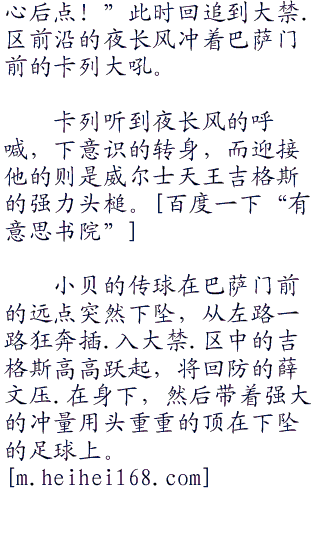 心后点！”此时回追到大禁.
区前沿的夜长风冲着巴萨门
前的卡列大吼。
卡列听到夜长风的呼
喊，下意识的转身，而迎接
他的则是威尔士天王吉格斯
的强力头槌。[百度一下“有
意思书院”]
小贝的传球在巴萨门前
的远点突然下坠，从左路一
路狂奔插.入大禁.区中的吉
格斯高高跃起，将回防的薛
文压.在身下，然后带着强大
的冲量用头重重的顶在下坠
的足球上。
[m.heihei168.com]